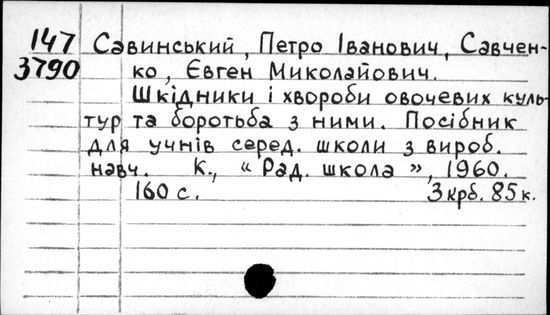 147 Савинський, Петро Іванович, Савчен-
3790 ко, Євген Миколайович.
Шкідники і хвороби овочевих куль-
тур та боротьба з ними. Посібник
для учнів серед. школи з вироб.
навч. К., "Рад. школа", 1960.
160 с. 3 крб. 85 к.